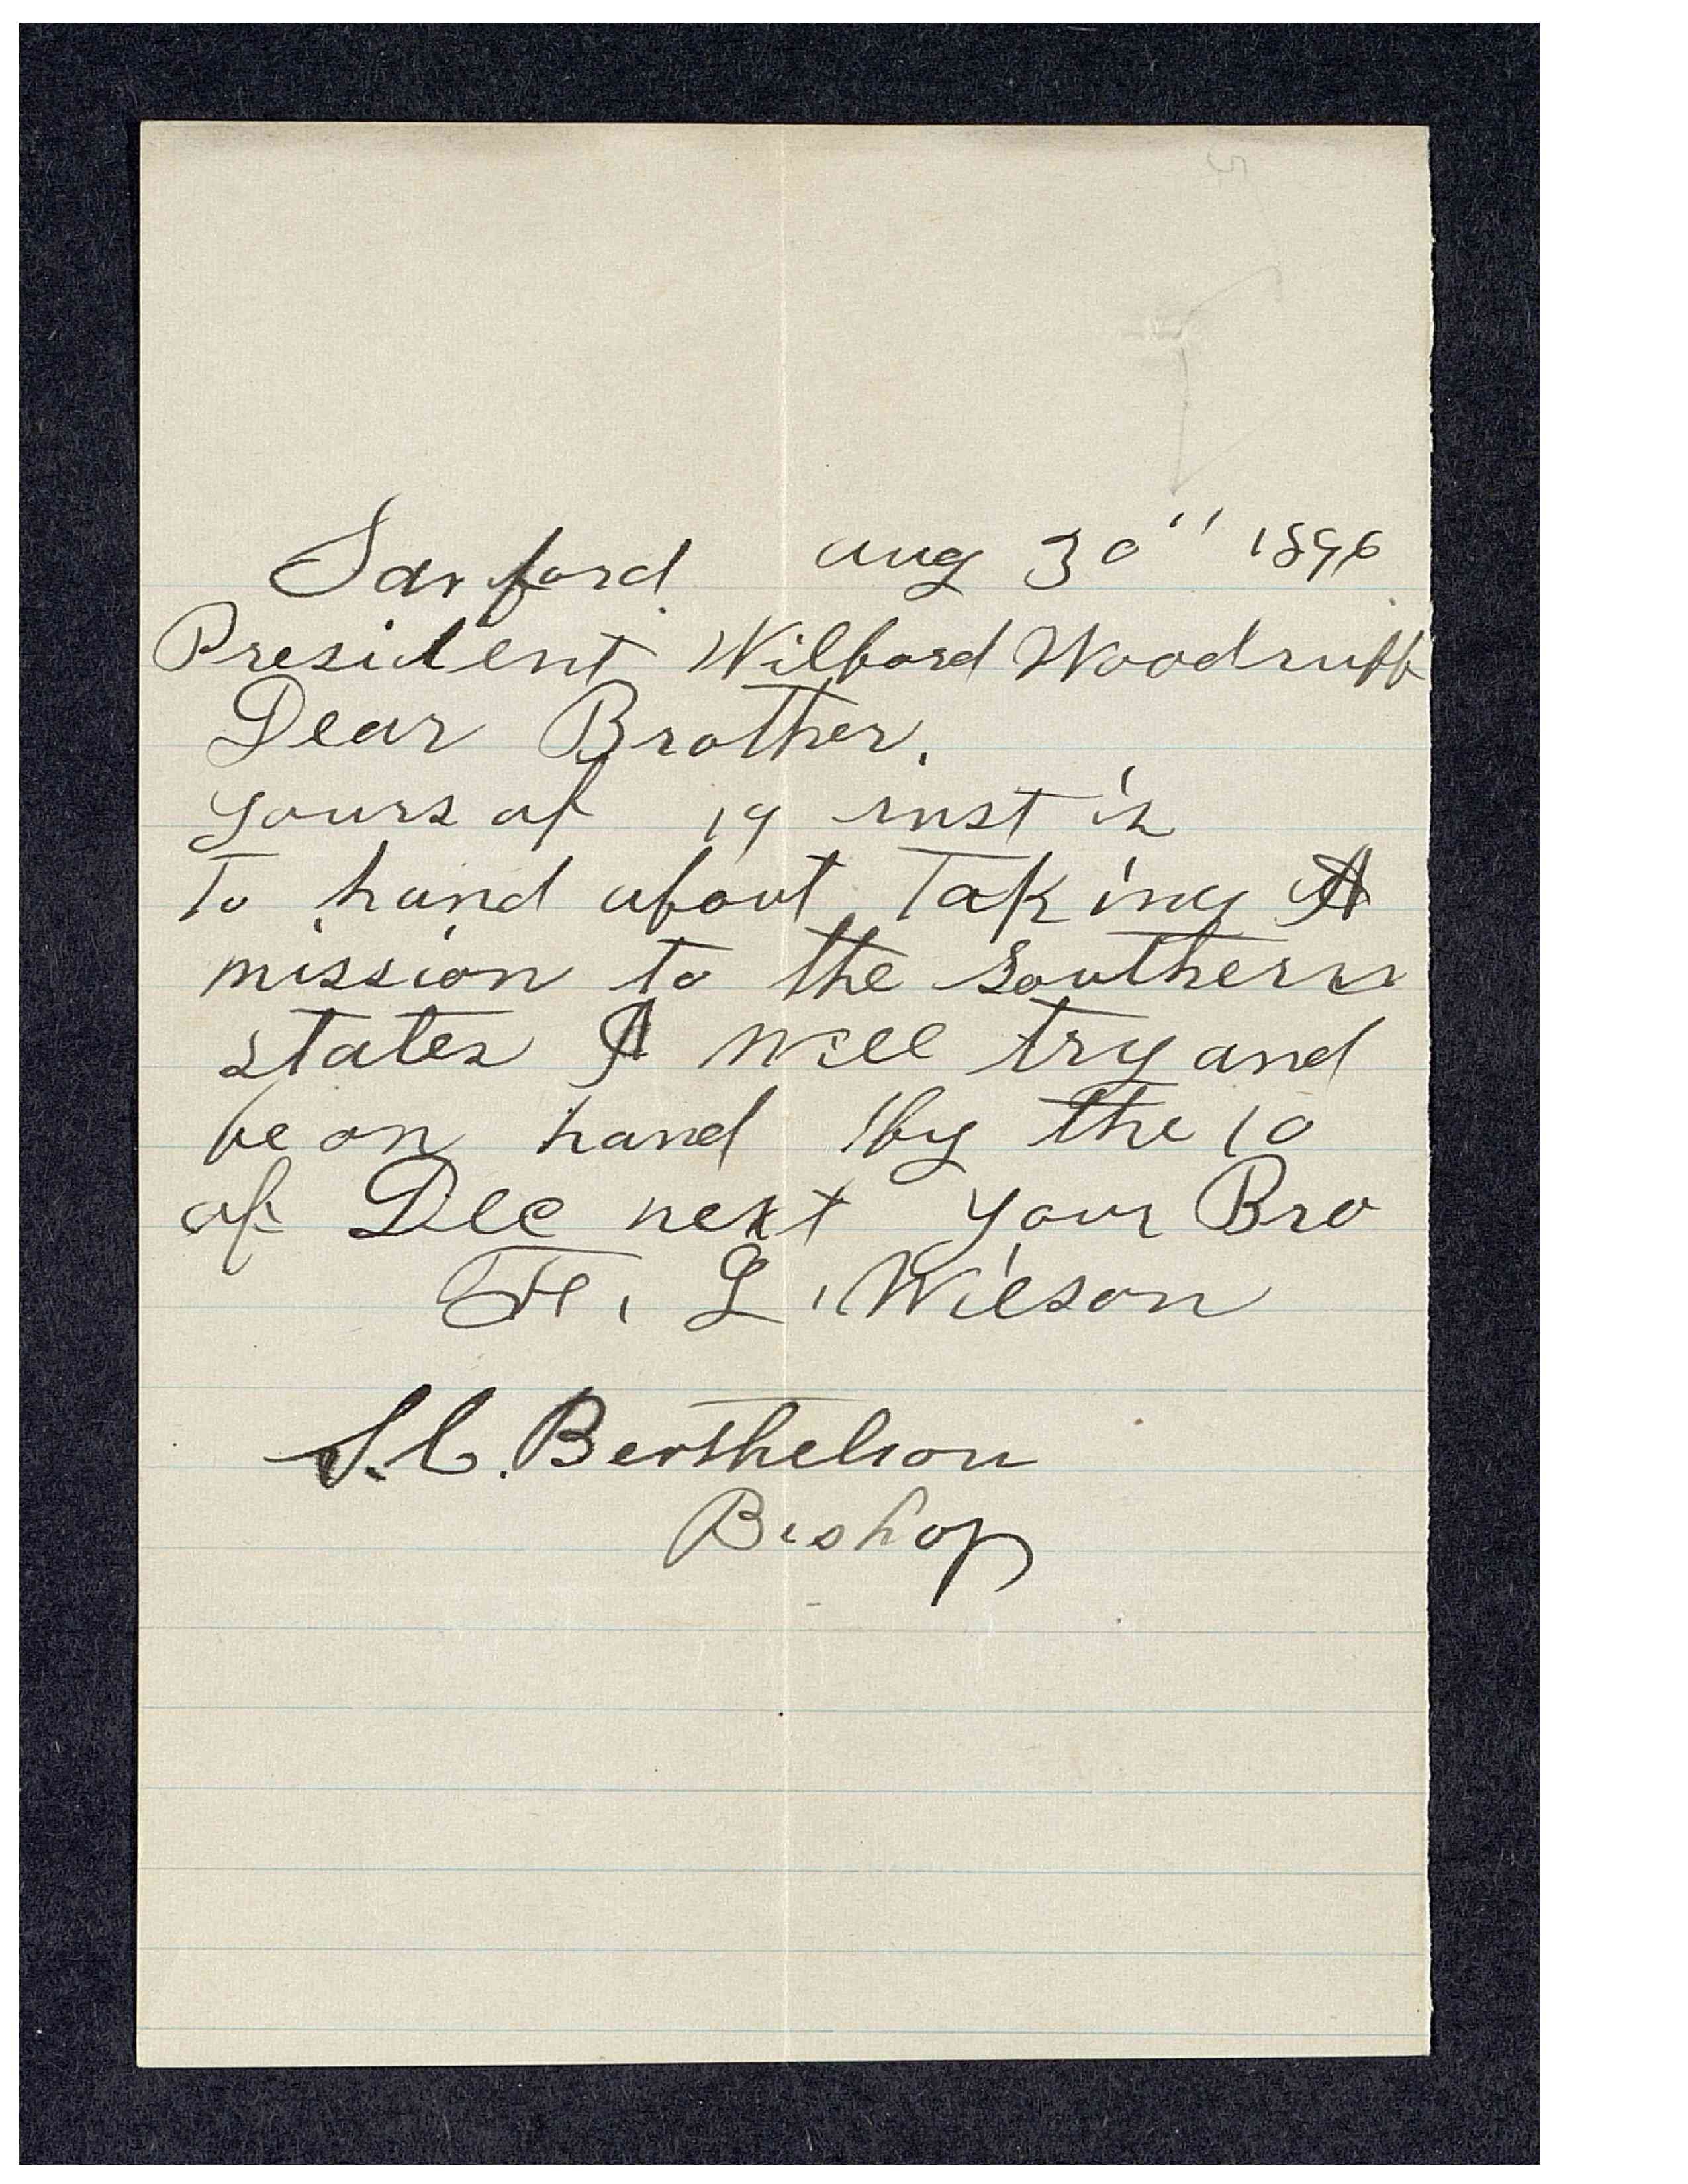 Sanford aug 30" 1896
President Wilford Woodruff
Dear Brother.
yours of 19 inst is
To hand about Taking A
mission to the Southern
states I will try and
be on hand by the 10
of Dec next your Bro
H. L. Wilson
S. C. Berthelson
Bishop